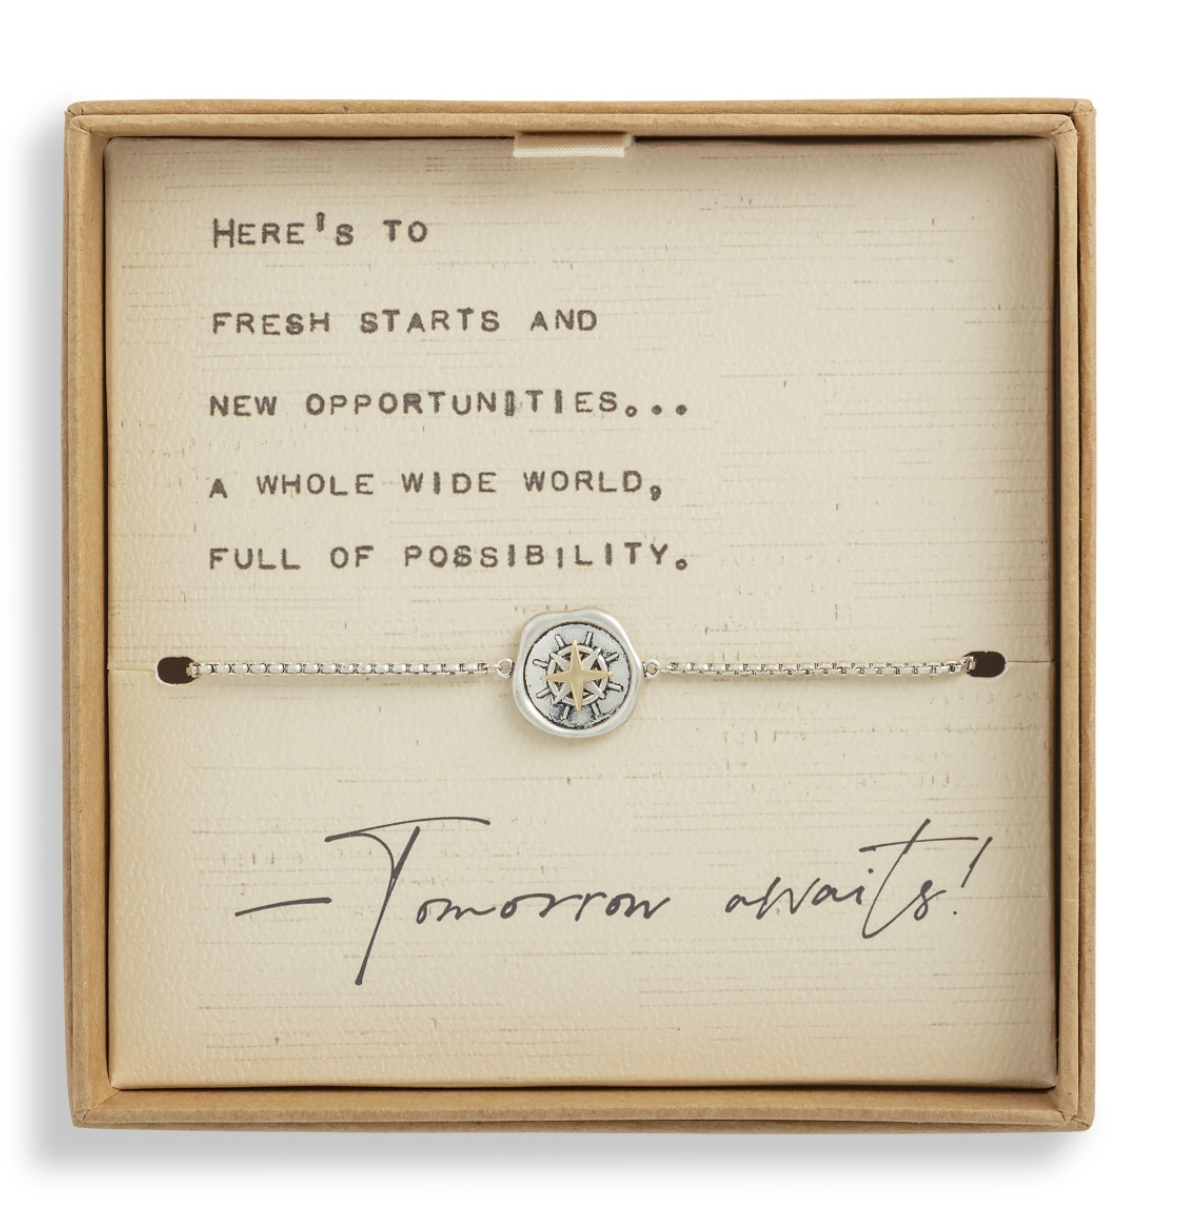 HERE'S TO
FRESH STARTS AND
NEW OPPORTUNITIES...
A WHOLE WIDE WORLD,
FULL OF POSSIBILITY.
—Tomorrow awaits!